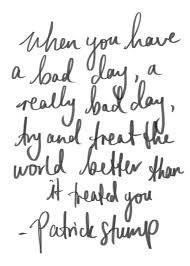 When you have
a bad day, a
really bad day,
try and treat the
world better than
it treated you
-Patrick Stump